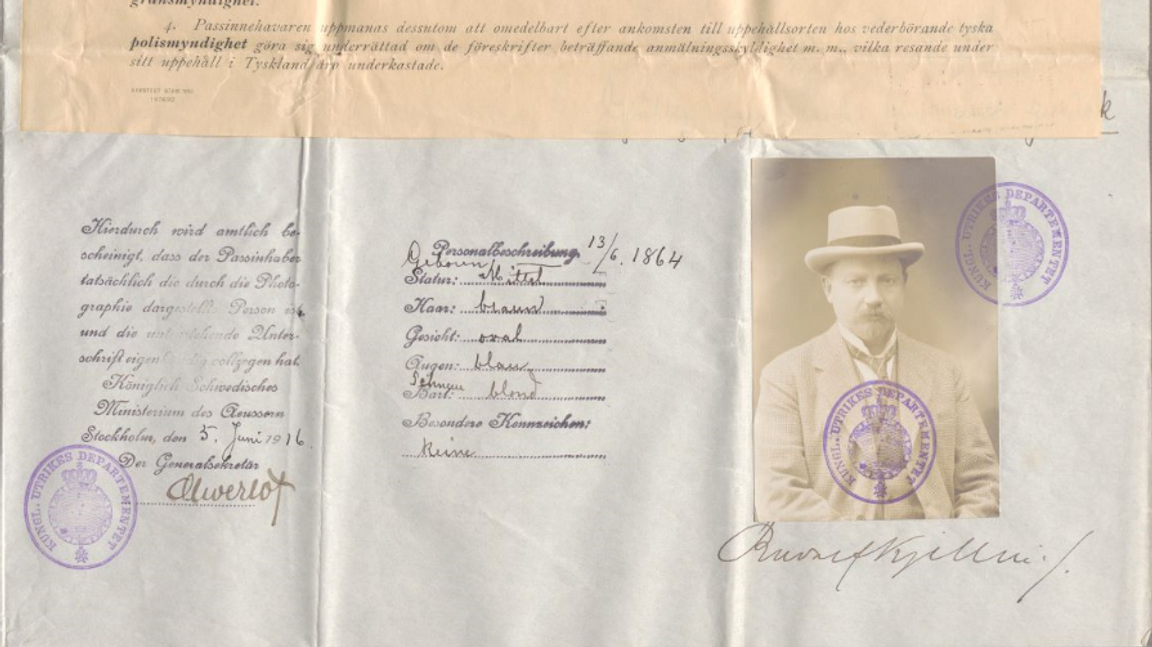 gränsmyndighet.
4. Passinnehavaren uppmanas dessutom att omedelbart efter ankomsten till uppehållsorten hos vederbörande tyska
polismyndighet göra sig underrättad om de föreskrifter beträffande anmälningsskyldighet m. m., vilka resande under
sitt uppehåll i Tyskland äro underkastade.
k
Hierdurch wird amtlich be-
scheinigt, dass der Passinhaber
tatsächlich die durch die Photo-
graphie dargestellte Person ist
und die untenstehende Unter-
schrift eigenhändig vollzogen hat.
Königlich Schwedisches
Ministerium des Aeussern
Stockholm, den 5. Juni 1916.
Der Generalsekretär
KUNGL. UTRIKES DEPARTEMENTET
Personalbeschreibung.
Geboren 13/6. 1864
Statur: Mittel
Haar: braun
Gesicht: oval
Augen: blau
Bart: blond
Besondere Kennzeichen:
Keine
KUNGL. UTRIKES DEPARTEMENTET
KUNGL. UTRIKES DEPARTEMENTET
Rudolf Kjellén